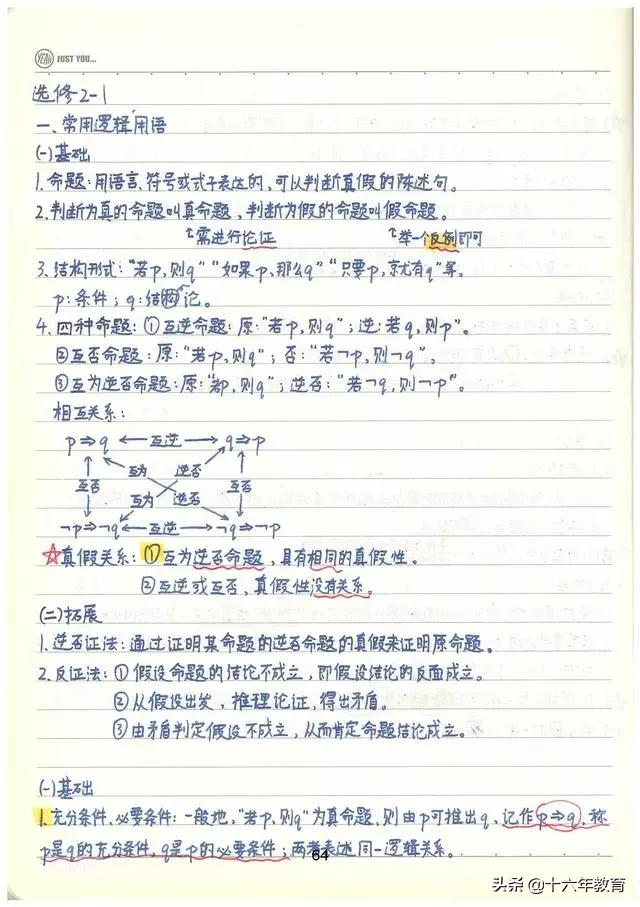 YEAH JUST YOU...
选修2-1
一、常用逻辑用语
(一)基础
1.命题:用语言、符号或式子表达的,可以判断真假的陈述句。
2.判断为真的命题叫真命题,判断为假的命题叫假命题。
↑需进行论证 ↑举一个反例即可
3.结构形式:“若p,则q”“如果p,那么q”“只要p,就有q”等。
p:条件;q:结论。
4.四种命题:①互逆命题:原:“若p,则q”;逆:若q,则p”。
②互否命题:原:“若p,则q”;否:“若¬p,则¬q”。
③互为逆否命题:原:“若p,则q”;逆否:“若¬q,则¬p”。
相互关系:
p⇒q ←互逆→ q⇒p
互为 逆否
互否 互否
互为 逆否
¬p⇒¬q ←互逆→ ¬q⇒¬p
☆真假关系:①互为逆否命题,具有相同的真假性。
②互逆或互否,真假性没有关系。
(二)拓展
1.逆否证法:通过证明其命题的逆否命题的真假来证明原命题。
2.反证法:①假设命题的结论不成立,即假设结论的反面成立。
②从假设出发,推理论证,得出矛盾。
③由矛盾判定假设不成立,从而肯定命题结论成立。
(一)基础
1.充分条件、必要条件:一般地,“若p,则q”为真命题,则由p可推出q,记作p⇒q,称
p是q的充分条件,q是p的必要条件;两者表述同一逻辑关系。
64
头条@十六年教育